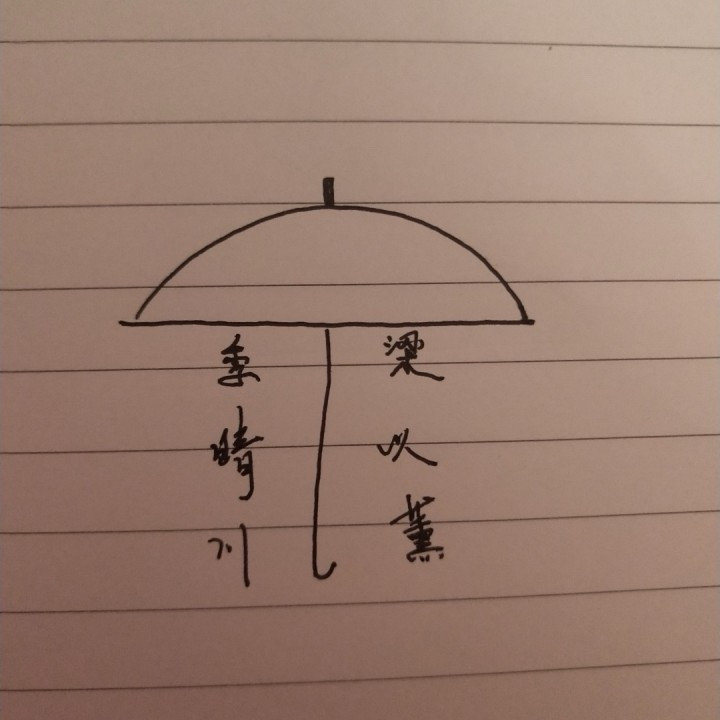 季晴川
梁以薰